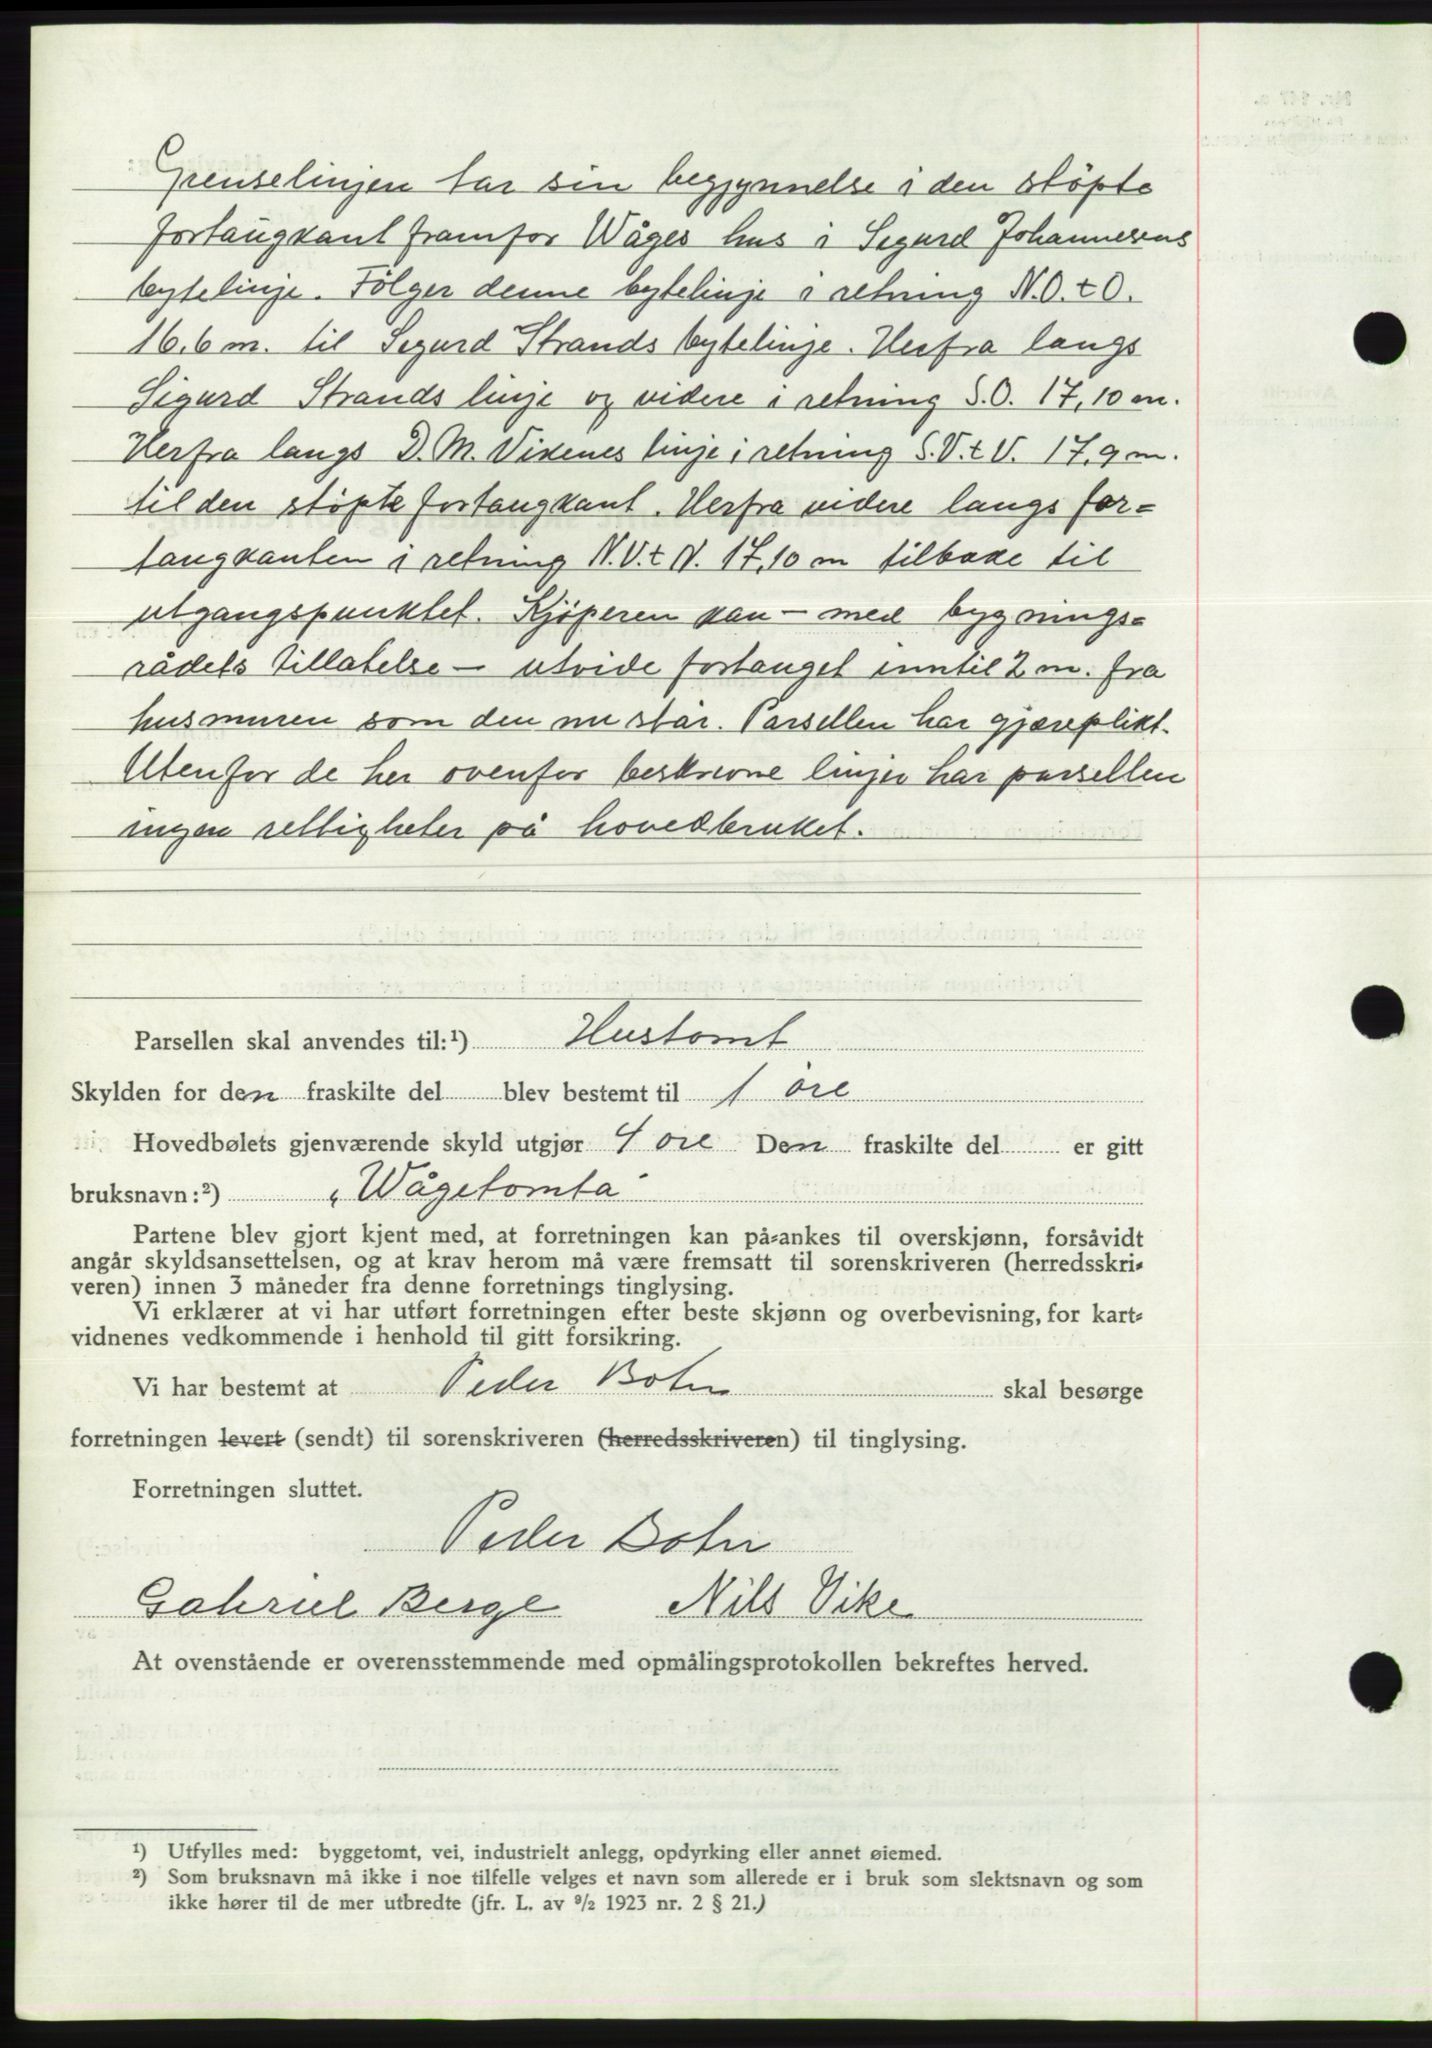 Grenselinjen tar sin begjynnelse i den støpte
fortaugkant framfor Wåges hus i Sigurd Johannesens
bytelinje. Følger denne bytelinje i retning N.O.t O.
16,6 m. til Sigurd Strands bytelinje. Herfra langs
Sigurd Strands linje og videre i retning S.O. 17,10 m.
Herfra langs D. M. Vikenes linje i retning S.V.t V. 17,9 m.
til den støpte fortaugkant. Herfra videre langs for=
taugkanten i retning N.V.t N. 17,10 m tilbake til
utgangspunktet. Kjøperen kan – med bygnings=
rådets tillatelse – utvide fortauget inntil 2 m. fra
husmuren som den nu står. Parsellen har gjæreplikt.
Utenfor de her ovenfor beskrevne linjer har parsellen
ingen rettigheter på hovedbruket.
Parsellen skal anvendes til:¹) Hustomt
Skylden for den fraskilte del blev bestemt til 1 øre
Hovedbølets gjenværende skyld utgjør 4 øre Den fraskilte del er gitt
bruksnavn:²) „Wågetomta"
Partene blev gjort kjent med, at forretningen kan på-ankes til overskjønn, forsåvidt
angår skyldsansettelsen, og at krav herom må være fremsatt til sorenskriveren (herredsskri-
veren) innen 3 måneder fra denne forretnings tinglysing.
Vi erklærer at vi har utført forretningen efter beste skjønn og overbevisning, for kart-
vidnenes vedkommende i henhold til gitt forsikring.
Vi har bestemt at Peder Bohn skal besørge
forretningen levert (sendt) til sorenskriveren (herredsskriveren) til tinglysing.
Forretningen sluttet.
Peder Bohn
Gabriel Berge Nils Vike
At ovenstående er overensstemmende med opmålingsprotokollen bekreftes herved.
¹) Utfylles med: byggetomt, vei, industrielt anlegg, opdyrking eller annet øiemed.
²) Som bruksnavn må ikke i noe tilfelle velges et navn som allerede er i bruk som slektsnavn og som
ikke hører til de mer utbredte (jfr. L. av ⁹/₂ 1923 nr. 2 § 21.)